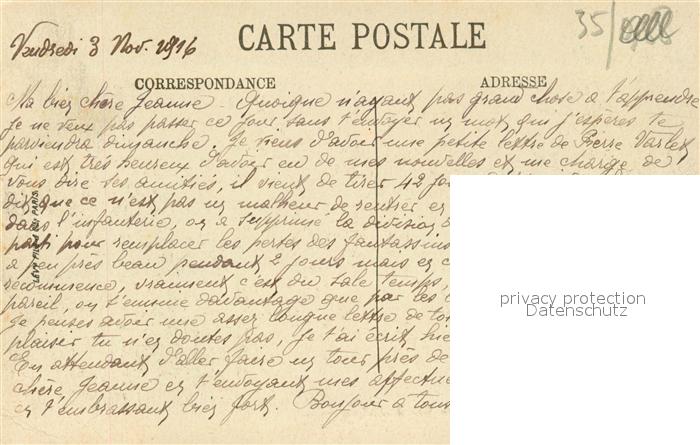 Vendredi 3 Nov. 1916
CARTE POSTALE
35/
CORRESPONDANCE
ADRESSE
Ma bien chère Jeanne - Quoique n'ayant pas grand chose a t'apprendre
je ne veux pas passer ce jour sans t'envoyer un mot qui j'espères te
parviendra dimanche. Je viens d'avoir une petite lettre de Pierre Varlet
qui est très heureux d'avoir eu de mes nouvelles et me charge de
vous dire ses amitiés, il vient de tirer 42 jo
dit que ce n'est pas un malheur de rentrer en
dans l'infanterie, on a supprimé la division
parti pour remplacer les pertes des fantassins
a peu près beau pendant 2 jours mais en c
recommence, vraiment c'est du sale temps,
pareil, on s'ennuie davantage que par les
Je penses avoir une assez longue lettre de toi
plaisir tu n'en doutes pas, je t'ai écrit hie
En attendant d'aller faire un tour près de
chère Jeanne en t'envoyant mes affectue
en t'embrassant bien fort. Bonjour a tous
LÉVY FILS & Cie PARIS
privacy protection
Datenschutz